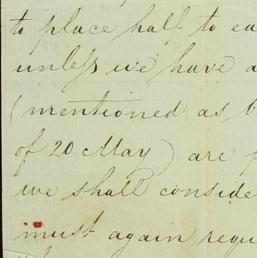 to place half to ea
unless we have a
(mentioned as b
of 20 May) are p
we shall conside
must again requ